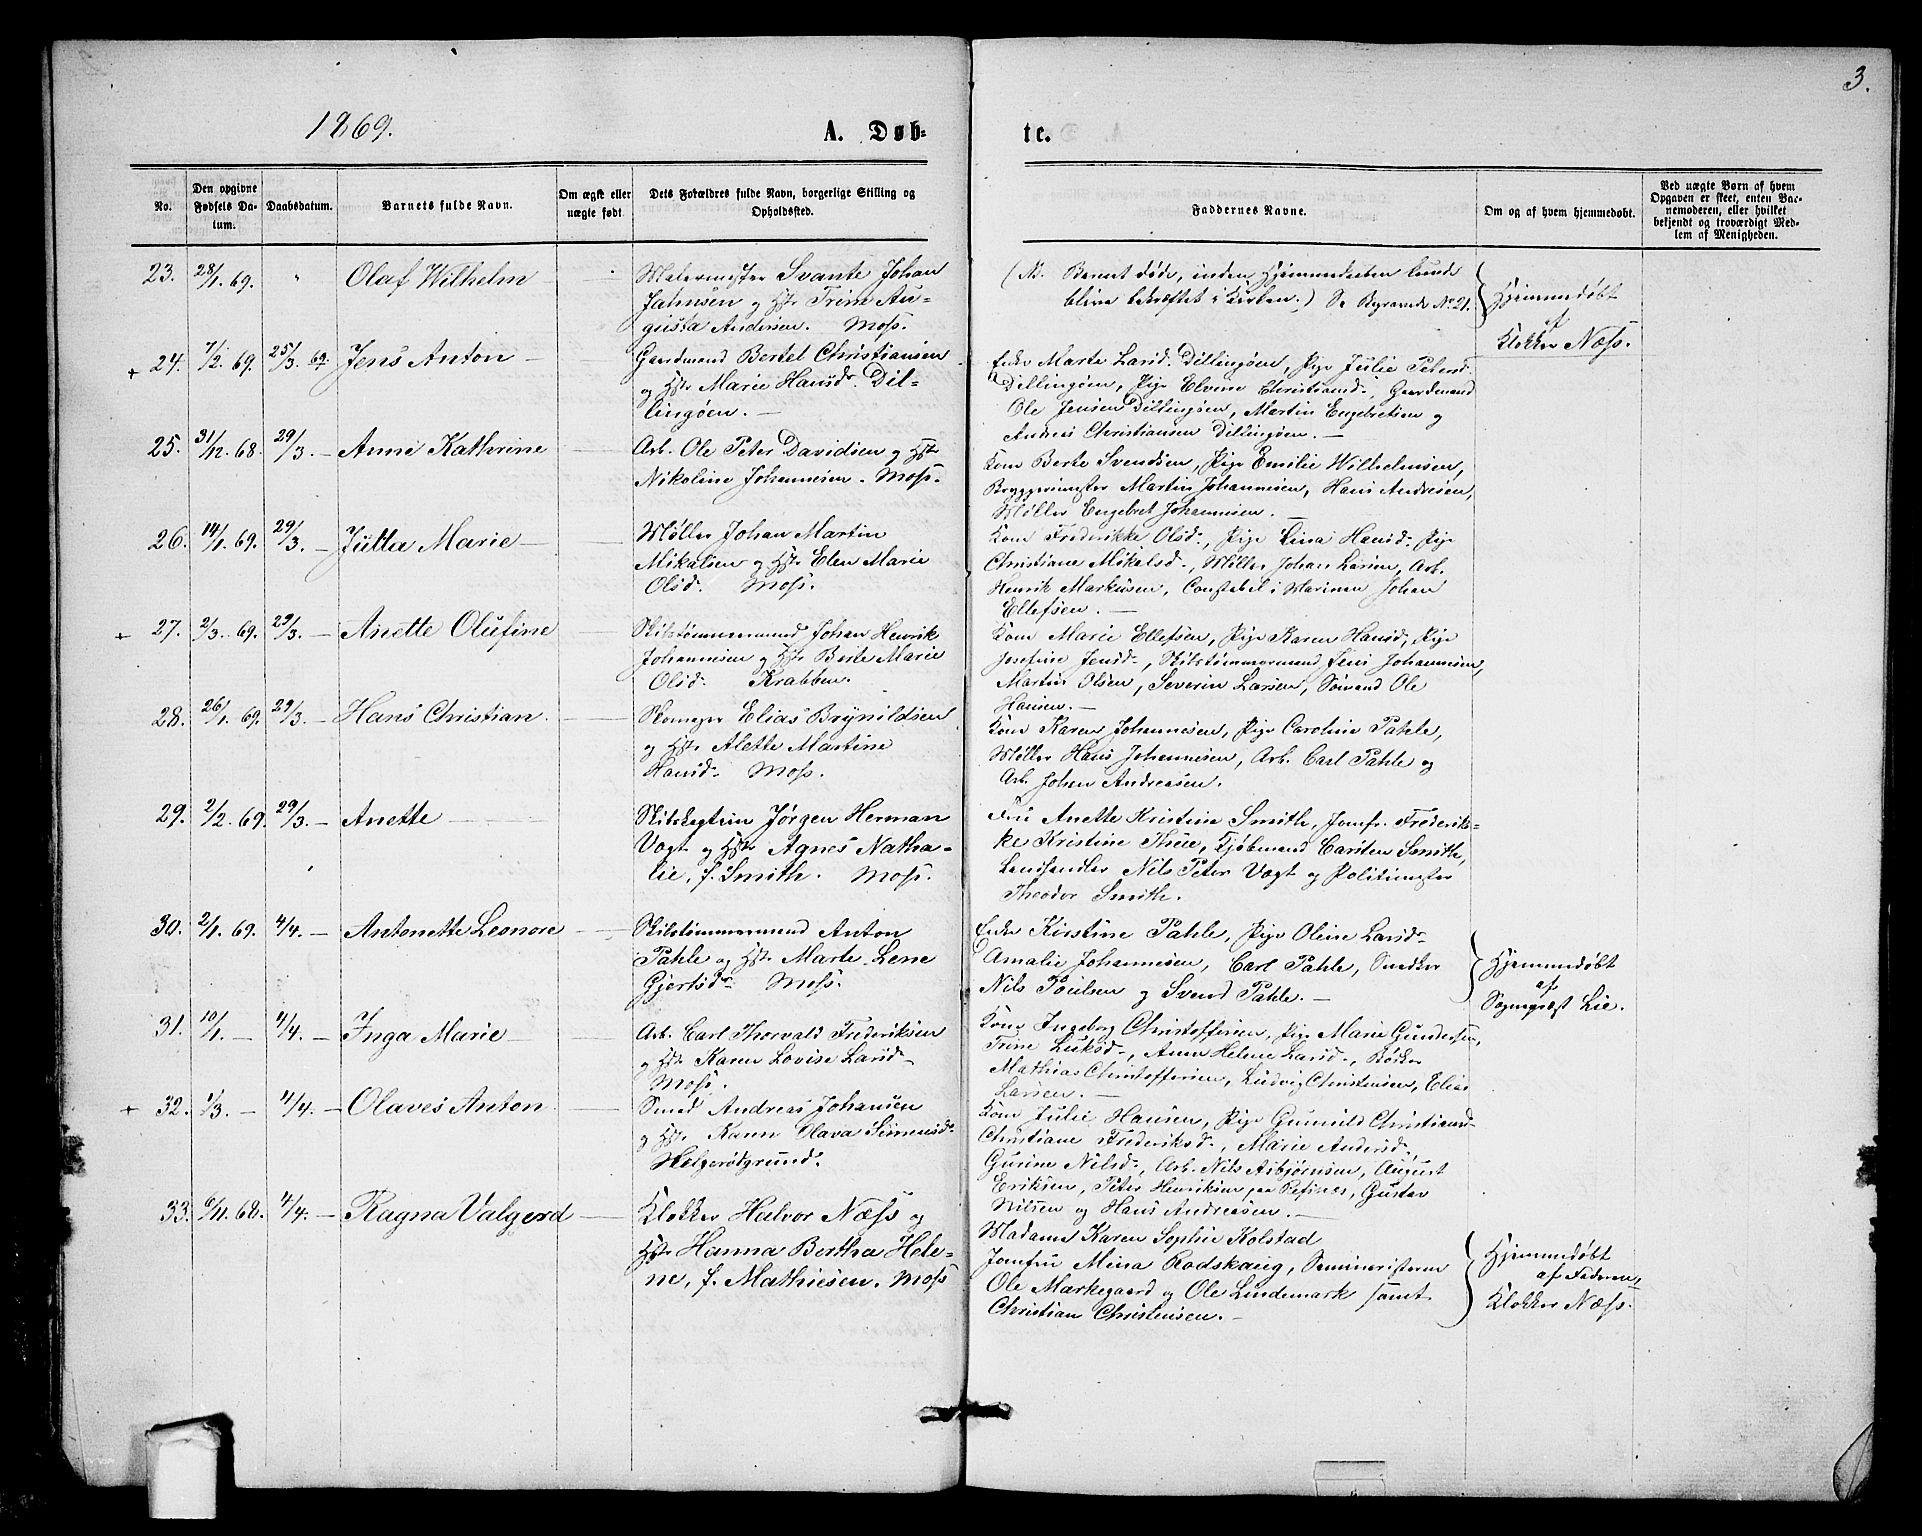 3.
1869.
A. Døb-
te.
No.
Den opgivne Fødsels Da-tum.
Daabsdatum.
Barnets fulde Navn.
Om ægte eller uægte født.
Dets Forældres fulde Navn, borgerlige Stilling og Opholdssted.
Faddernes Navne.
Om og af hvem hjemmedøbt.
Ved uægte Børn af hvem Opgaven er skeet, enten Bar-nemoderen, eller hvilket bekjendt og troværdigt Med-lem af Menigheden.
23. 28/1 69. " Olaf Wilhelm
Malermester Svante Johan
Jahnsen og Hst. Trine Au-
gusta Andersen. Moss.
(NB. Barnet døde, inden Hjemmedaaben kunde
blive bekræftet i Kirken.) Se Begravede No 21.
Hjemmedøbt
af
Klokker Næss.
+ 24. 7/2 69. 25/3 69. Jens Anton —
Gaardmand Bertel Christiansen
og Hst. Marie Hansd. Dil-
lingøen. —
Enke Marte Larsd. Dillingøen, Pige Julie Petersd.
Dillingøen, Pige Elvine Christiansd., Gaardmand
Ole Jensen Dillingøen, Martin Engebretsen og
Andreas Christiansen Dillingøen. —
25. 31/12. 68. 29/3. — Anne Kathrine
Arb. Ole Peter Davidsen og Hst.
Nikoline Johannesen. Moss.
Kone Berte Svendsen, Pige Emilie Wilhelmsen,
Bryggermester Martin Johannesen, Hans Andresen,
Møller Engebret Johannesen. —
26. 14/1. 69. 29/3. — Jutta Marie —
Møller Johan Martin
Mikalsen og Hst. Elen Marie
Olsd. Moss.
Kone Frederikke Olsd., Pige Lina Hansd. Pige
Christiane Mikalsd., Møller Johan Larsen, Arb.
Henrik Markusen, Constabel i Marinen Johan
Ellefsen. —
+ 27. 2/3. 69. 29/3. — Anette Olufine
Skibstømmermand Johan Henrik
Johannesen og Hst. Berte Marie
Olsd. Krabben.
Kone Marie Ellefsen, Pige Karen Hansd., Pige
Josefine Jensd., Skibstømmermand Jens Johannesen,
Martin Olsen, Severin Larsen, Sømand Ole
Hansen. —
28. 26/1. 69. 29/3. — Hans Christian.
Skomager Elias Brynildsen
og Hst. Alette Martine
Hansd. Moss.
Kone Karen Johannesen, Pige Caroline Pahle,
Møller Hans Johannesen, Arb. Carl Pahle og
Arb. Johan Andreasen.
29. 2/2. 69. 29/3. — Anette
Skibskaptein Jørgen Herman
Vogt og Hst. Agnes Natha-
lie, f. Smith. Moss.
Fru Anette Kristine Smith, Jomfr. Frederik-
ke Kristine Thue, Kjøbmand Carsten Smith,
Landhandler Nils Peter Vogt og Politimester
Theodor Smith.
30. 2/1. 69. 4/4. — Antonette Leonore
Skibstømmermand Anton
Pahle og Hst. Marte Lene
Gjertsd. Moss.
Enke Kirstine Pahle, Pige Oline Larsd.
Amalie Johannesen, Carl Pahle, Snedker
Nils Poulsen og Svend Pahle. —
Hjemmedøbt
af
Sognepræst Lie.
31. 10/1. — 4/4. — Inga Marie
Arb. Carl Thorvald Frederiksen
og Hst. Karen Lovise Larsd.
Moss.
Kone Ingeborg Christoffersen, Pige Marie Gundersen,
Trine Luksd., Anne Helene Larsd., Bødker
Mathias Christoffersen, Ludvig Christensen, Elias
Larsen. —
+ 32. 1/3. — 4/4. — Olaves Anton
Smed Andreas Johansen
og Hst. Karen Olava Simensd.
Helgerødgrund.
Kone Julie Hansen, Pige Gunnild Christiansd.
Christiane Frederiksd., Marie Andersd.,
Gurine Nilsd., Arb. Nils Asbjørnsen, August
Eriksen, Peter Henriksen paa Refsnæs, Gustav
Nilsen og Hans Andreasen. —
33. 6/11. 68. 4/4. — Ragna Valgerd
Klokker Halvor Næss og
Hst. Hanna Bertha Hele-
ne, f. Mathiesen. Moss
Madame Karen Sophie Kolstad
Jomfru Mina Rodskaug, Seminaristerne
Ole Markegaard og Ole Lindemark samt
Christian Christensen. —
Hjemmedøbt
af Faderen,
Klokker Næss.